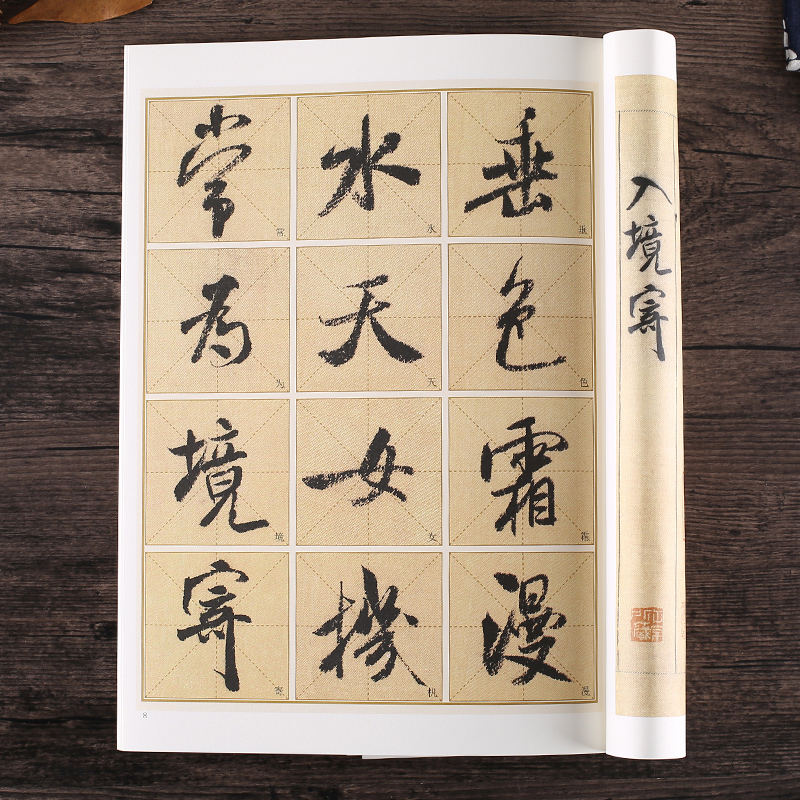 入境寄
垂色霜漫
垂色霜漫
水天女機
水天女机
常為境寄
常为境寄
8